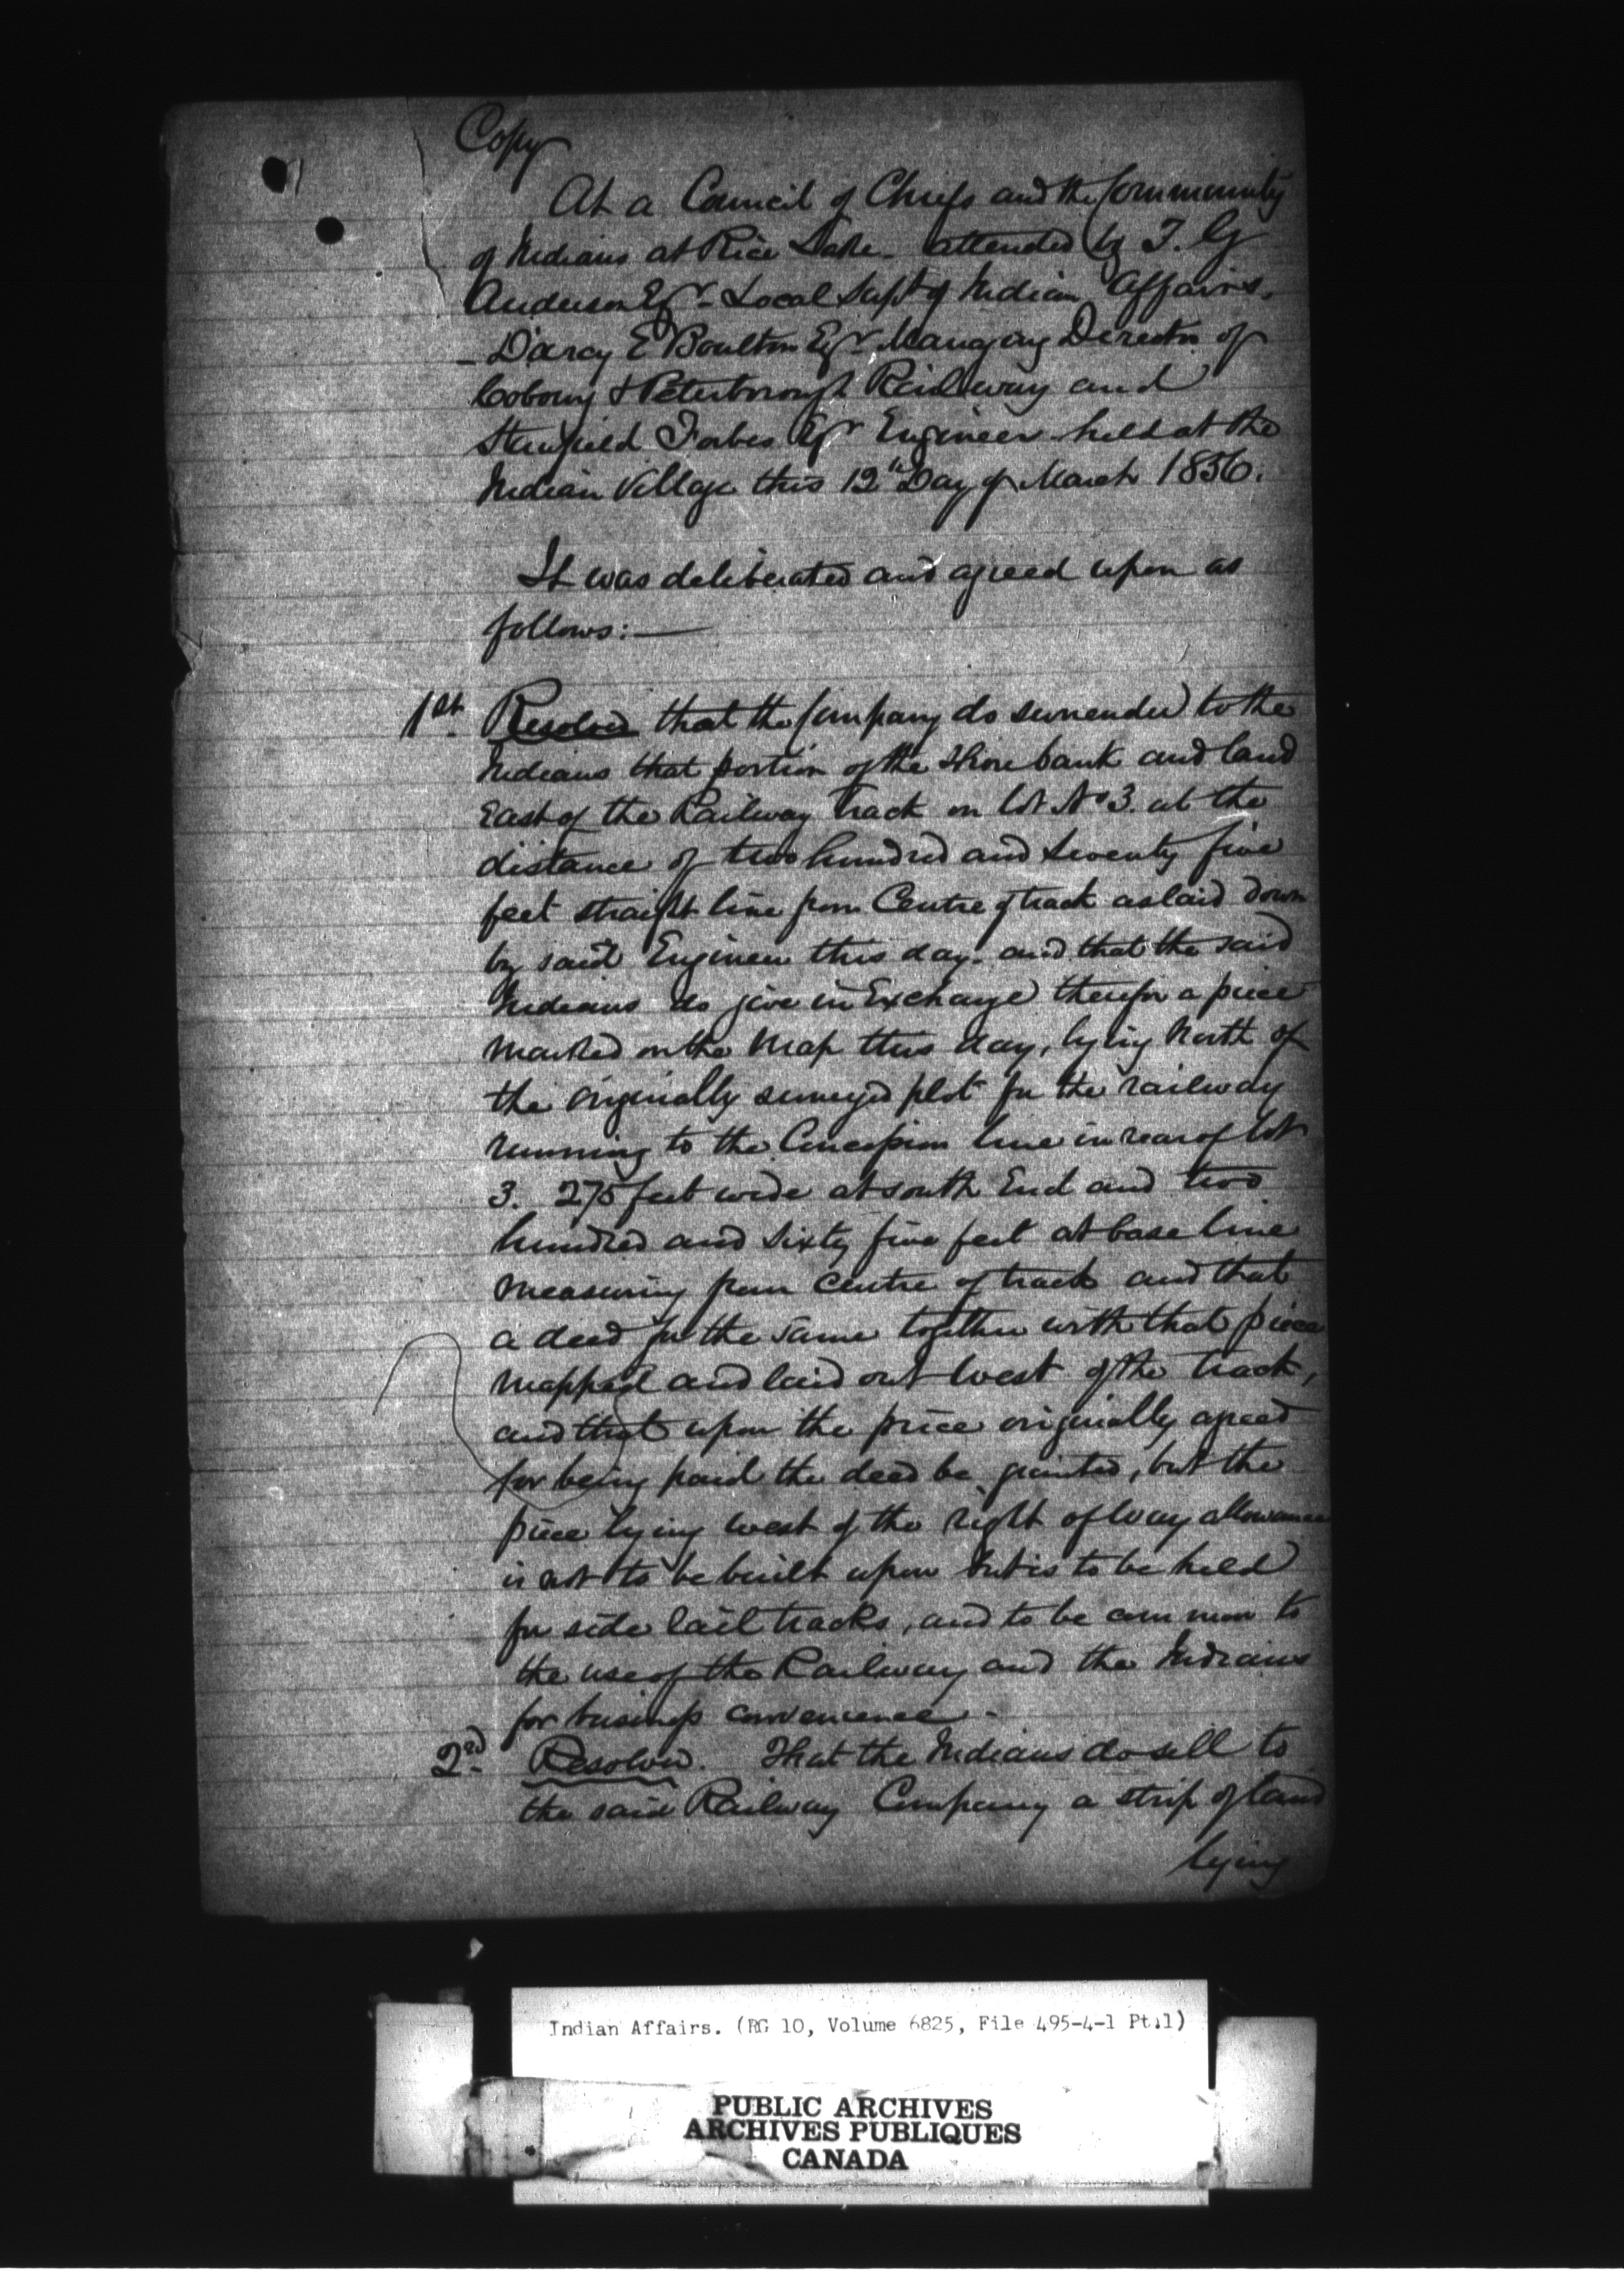 Copy
At a Council of Chiefs and the Community
of Indians at Rice Lake - attended by T. G
Anderson Esqr - Local Supt of Indian Affairs.
- D'arcy E Boulton Esqr Managing Director of
Cobourg & Peterborough Railway and
Forbes Esqr Engineer held at the
Indian Village this 12th Day of March 1856.
It was deliberated and agreed upon as
follows: —
1st. Resolved that the Company do surrender to the
Indians that portion of the Shore bank and land
East of the Railway track on lot No 3. at the
distance of two hundred and seventy five
feet straight line from Centre of track as laid down
by said Engineer this day. and that the said
Indians do give in Exchange therefor a piece
marked on the Map this day, lying North of
the originally surveyed plot for the railway
running to the Concession line in rear of lot
3. 275 feet wide at south End and two
hundred and sixty five feet at base line
measuring from Centre of track and that
a deed for the same together with that piece
mapped and laid out West of the track,
and that upon the price originally agreed
for being paid the deed be granted, but the
piece lying west of the right of way allowance
is not to be built upon but is to be held
for side rail tracks, and to be common to
the use of the Railway and the Indians
for business convenience -
2nd. Resolved. That the Indians do sell to
the said Railway Company a strip of land
lying
Indian Affairs. (RG 10, Volume 6825, File 495-4-1 Pt.1)
PUBLIC ARCHIVES
ARCHIVES PUBLIQUES
CANADA